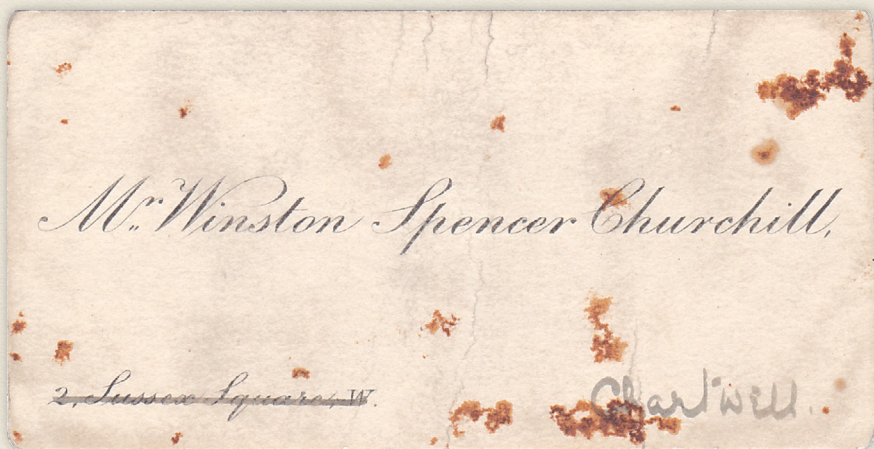 Mr. Winston Spencer Churchill,
2, Sussex Square, W.
Chartwell.